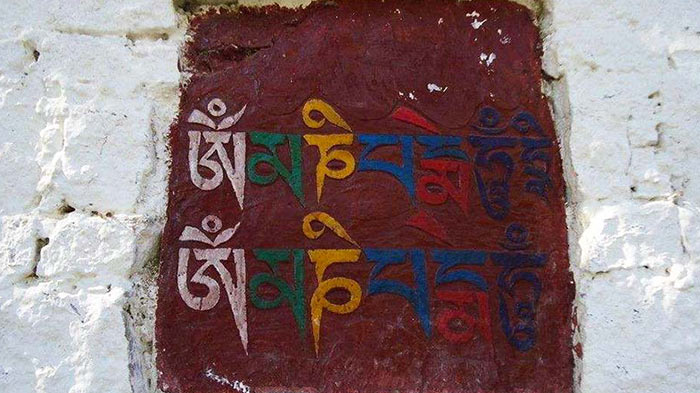 ཨོཾ མ ཎི པ དྨེ ཧཱུྃ
ཨོཾ མ ཎི པ དྨེ ཧཱུྃ